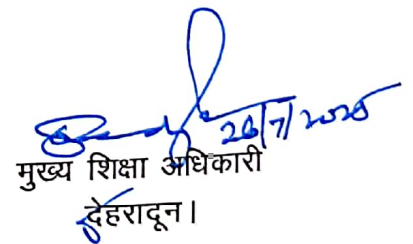 26/7/2025
मुख्य शिक्षा अधिकारी
देहरादून।